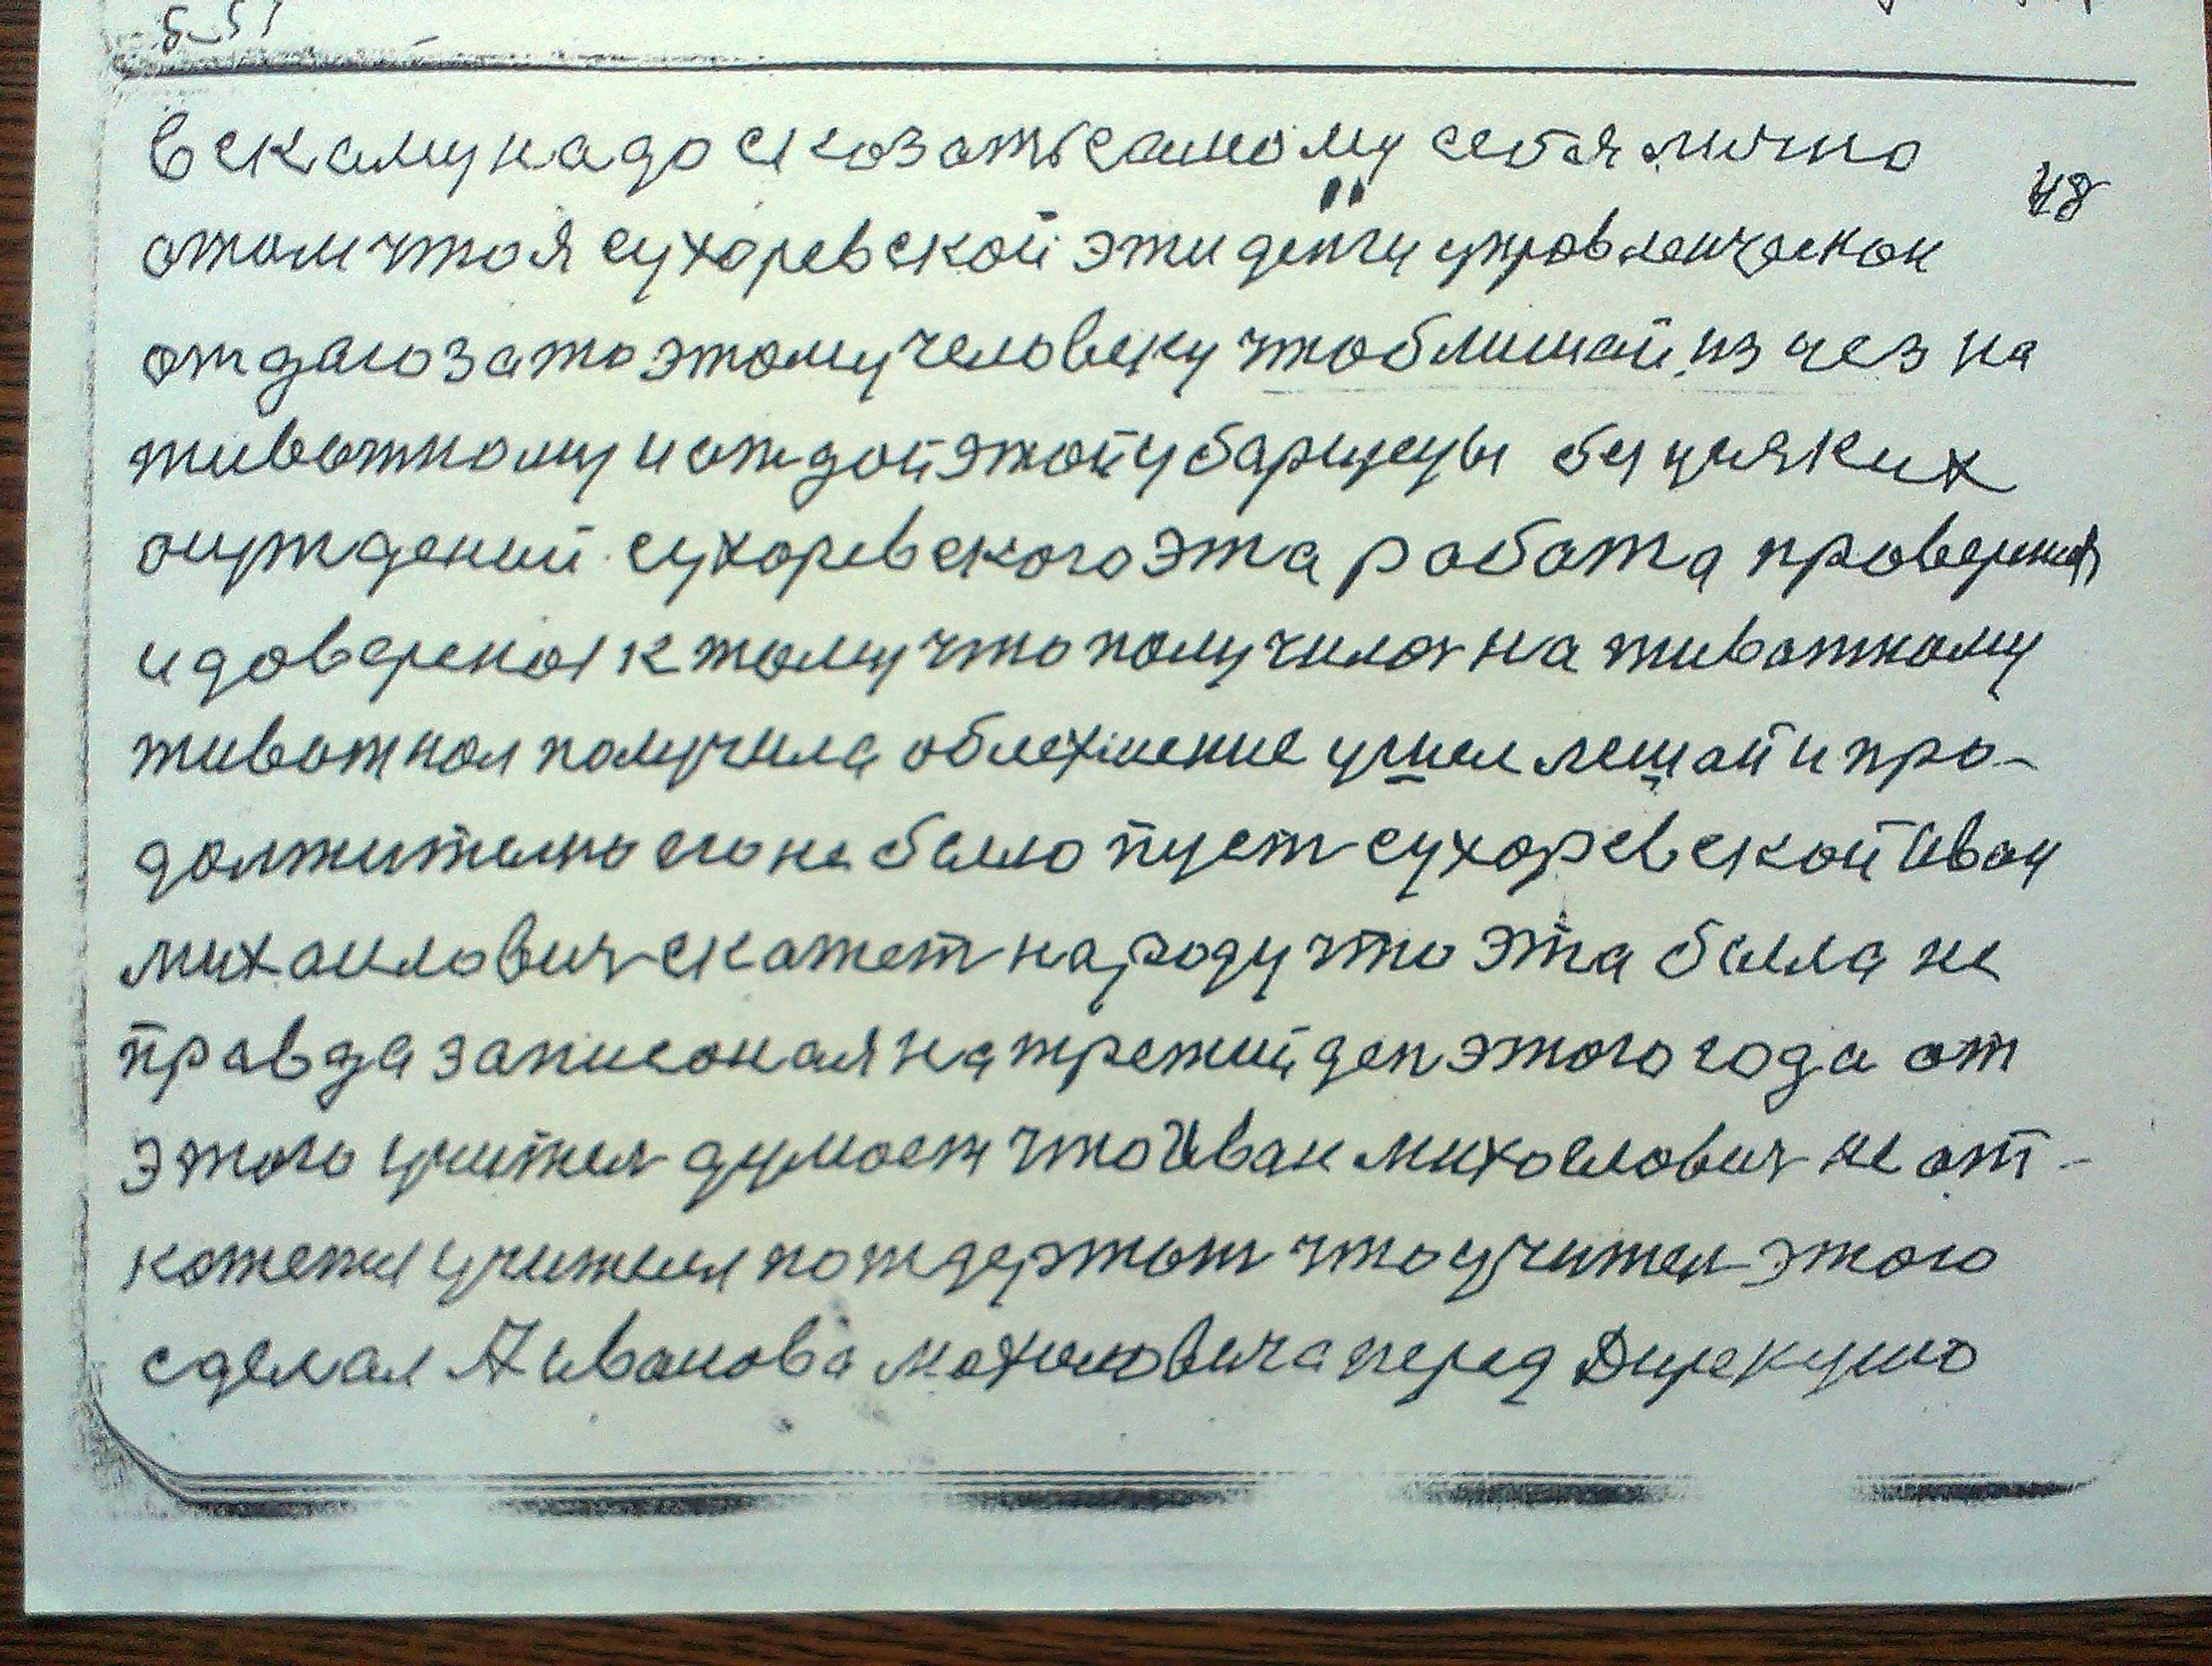 вскаму надо сказать самому себя лично
48
отом что я сухоревской эти денги управленческои
отдаю зато этому человеку чтоб лишай изчез на
животному и отдой этой у барщцы буцияких
оцуждений сухоревского эта работа проверена
и доверена к тому что получила на животному
животная получила облехшение ушел лешай и про-
должително его не было пуст сухоревской Иван
михаилович скажет народу что эта былла не
правда записоная на третий ден этого года от
этого учител думает что Иван михоилович не от-
кажется учителя потдержат что учител этого
сделал Я иванова махиловича перед Дирекцию